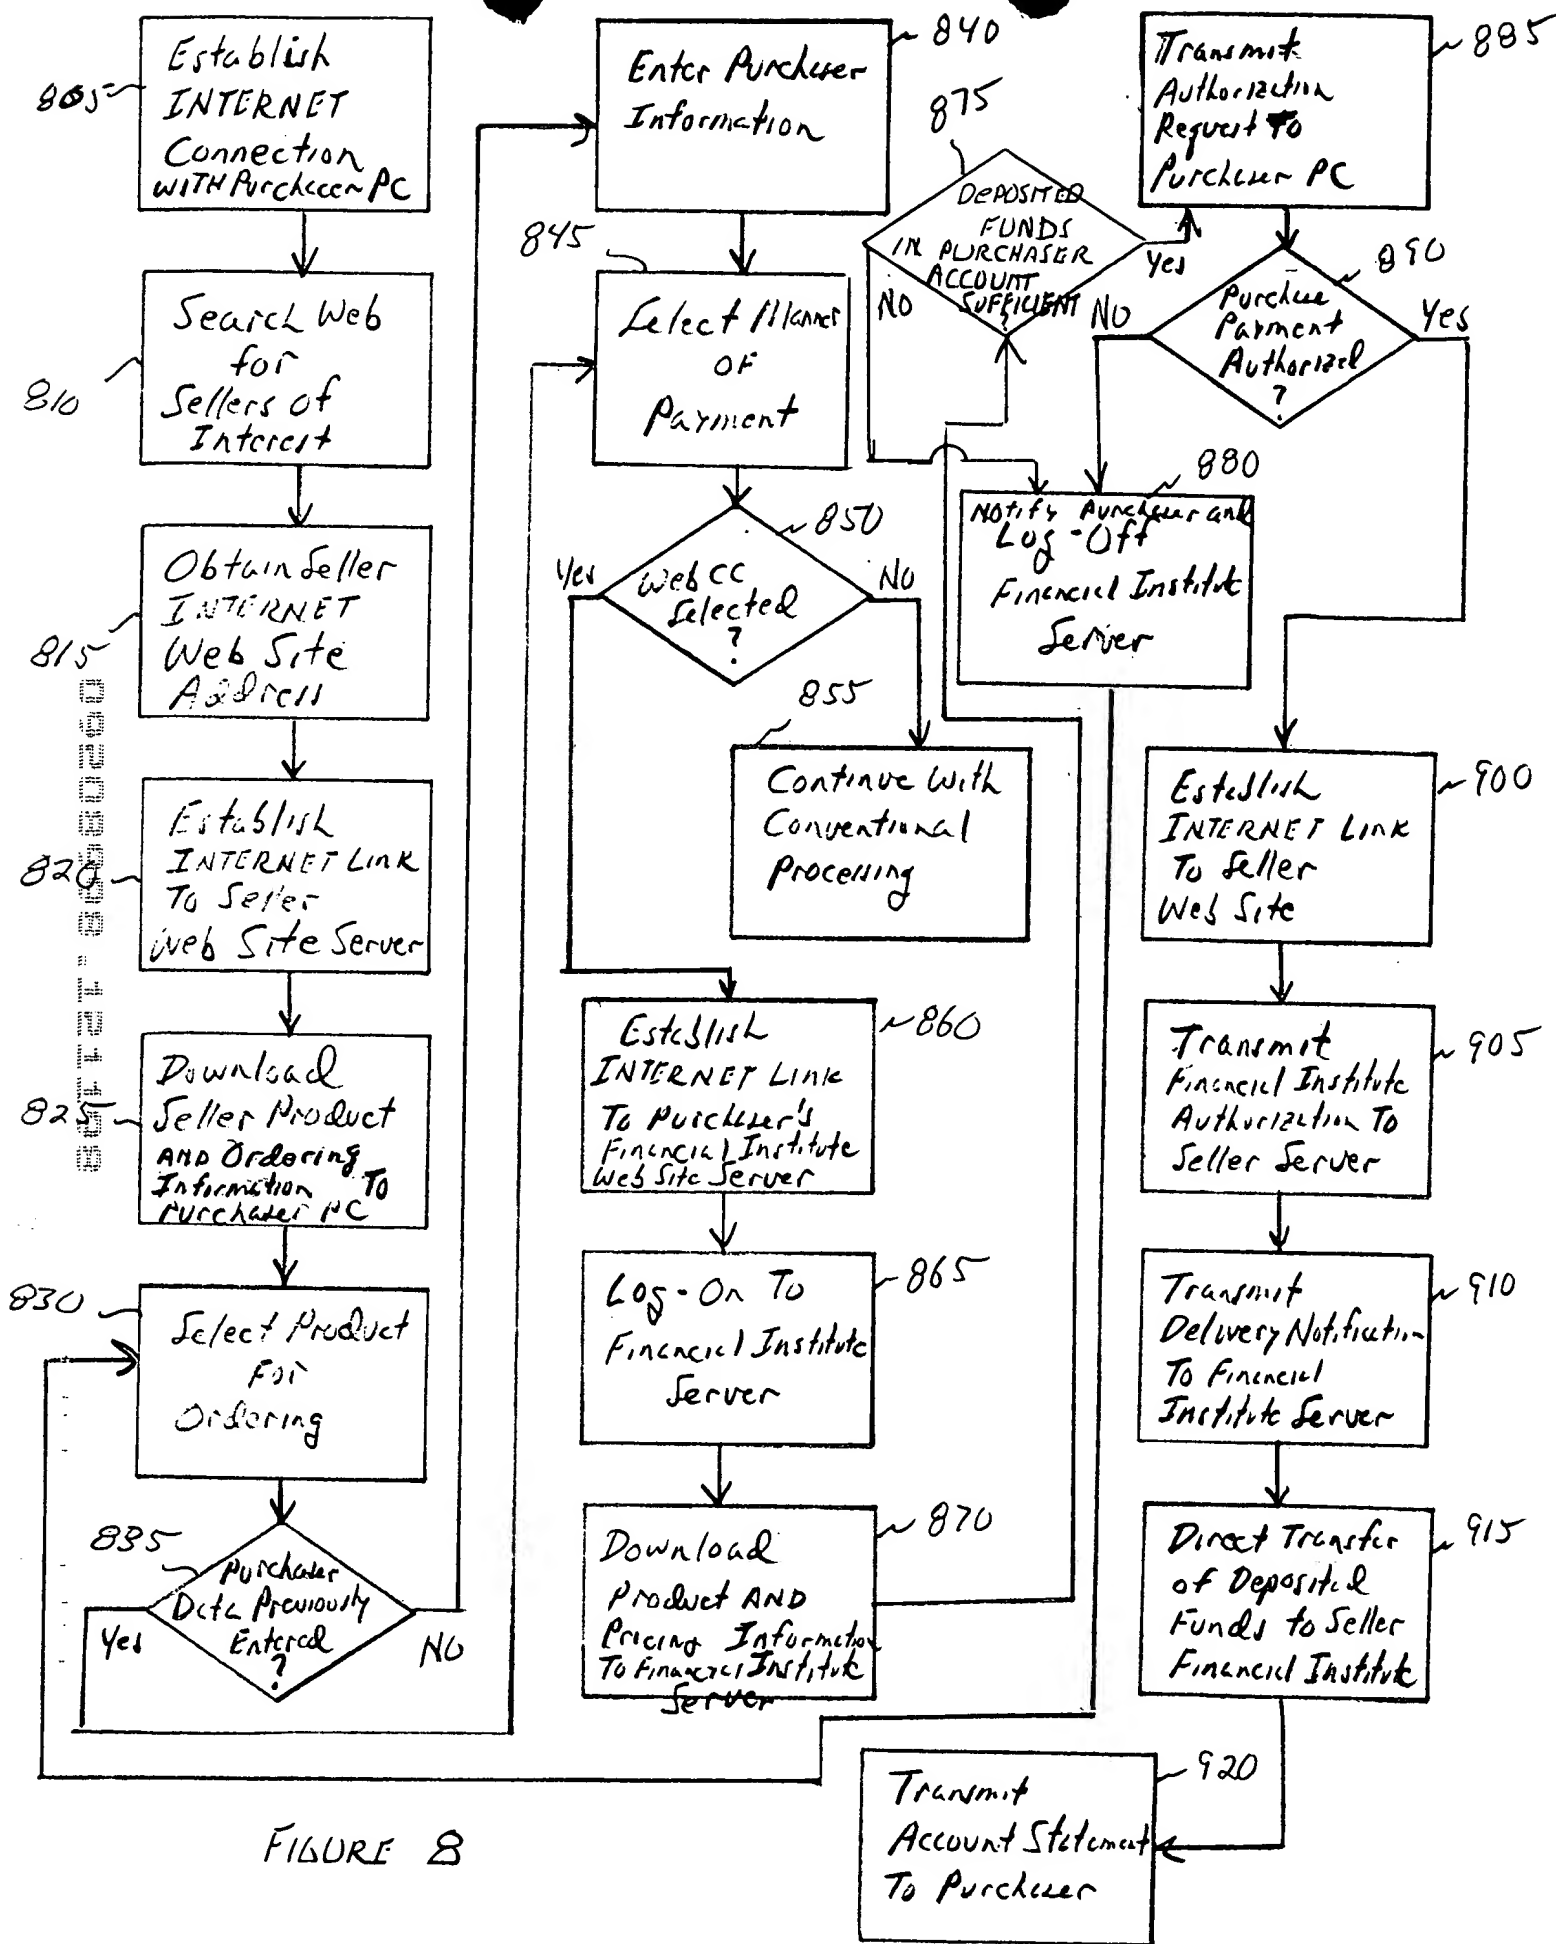 805
Establish
INTERNET
Connection
WITH Purchaser PC
810
Search Web
for
Sellers of
Interest
815
Obtain Seller
INTERNET
Web Site
Address
820
Establish
INTERNET Link
To Seller
Web Site Server
825
Download
Seller Product
AND Ordering
Information To
Purchaser PC
830
Select Product
For
Ordering
835
Purchaser
Data Previously
Entered
?
Yes
NO
840
Enter Purchaser
Information
845
Select Manner
OF
Payment
850
Web CC
Selected
?
Yes
NO
855
Continue With
Conventional
Processing
860
Establish
INTERNET Link
To Purchaser's
Financial Institute
Web Site Server
865
Log-On To
Financial Institute
Server
870
Download
Product AND
Pricing Information
To Financial Institute
Server
875
DEPOSITED
FUNDS
IN PURCHASER
ACCOUNT
SUFFICIENT
?
NO
Yes
880
Notify Purchaser and
Log-Off
Financial Institute
Server
885
Transmit
Authorization
Request To
Purchaser PC
890
Purchase
Payment
Authorized
?
NO
Yes
900
Establish
INTERNET Link
To Seller
Web Site
905
Transmit
Financial Institute
Authorization To
Seller Server
910
Transmit
Delivery Notification
To Financial
Institute Server
915
Direct Transfer
of Deposited
Funds to Seller
Financial Institute
920
Transmit
Account Statement
To Purchaser
FIGURE 8